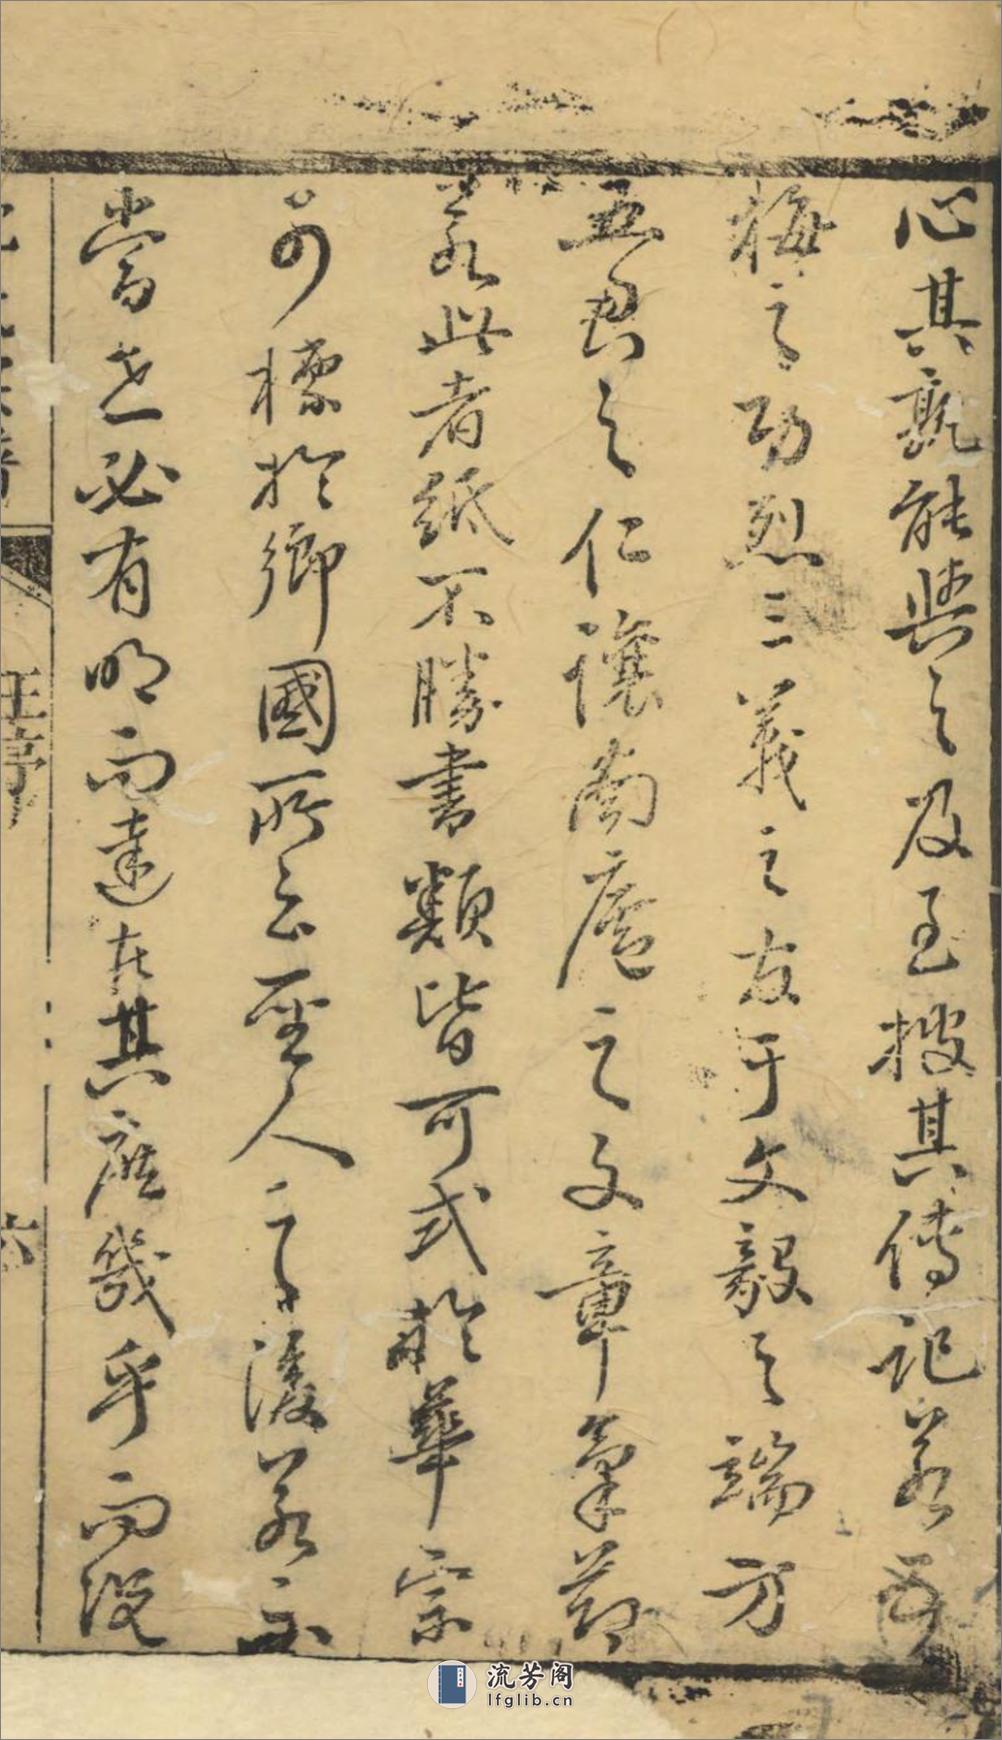 心其孰能與之及至搜其傳記若
梅之功烈三義之友于文毅之端方
五君之仁讓南廬之文章氣節
若此者紙不勝書類皆可式於華宗
可標於鄉國所云聖人之後若不
當世必有明而達在其庶幾乎而沒
王序
六
流芳阁
lfglib.cn